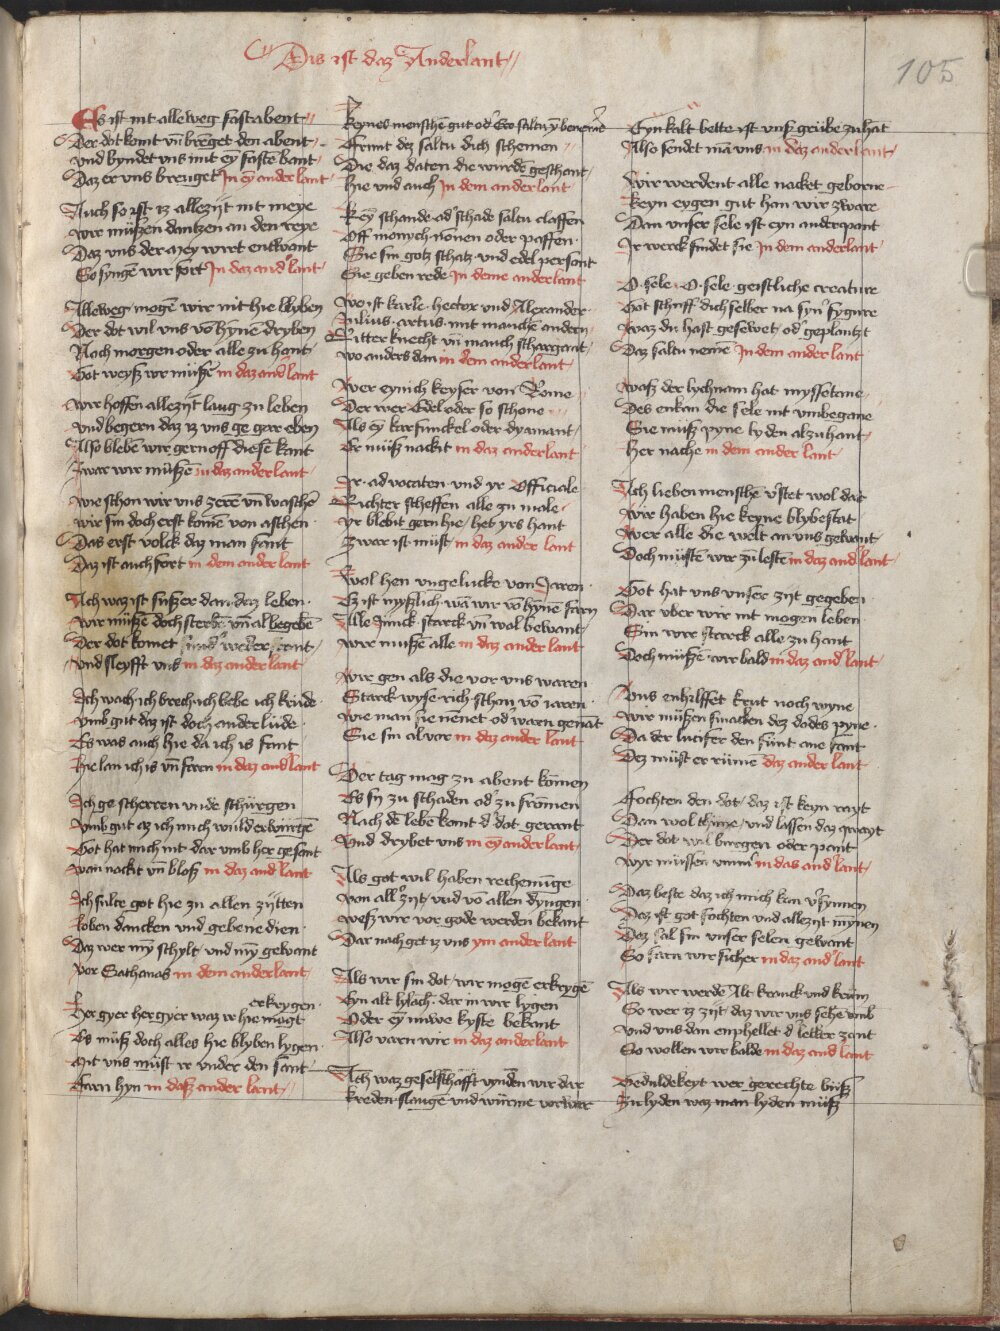 Dis ist daz Anderlant
105
Es ist nit alleweg fastabent
Der dot komt vn̄ brēget den abent
vnd byndet vns mit eȳ faste bant
Daz er vns brenget In eȳ ander lant
Auch so ist iz allezijt nit meye
wir müszen dantzen an den reye
Daz vns der mey wirt entwant
So syngē wir fort In daz and'lant
Alleweg mogē wir nit hie blyben
Der dot wil vns vō hynē dryben
Noch morgen oder alle zu hant
Got weysz wir müszē in daz and'lant
wir hoffen allezijt lang zu leben
vnd begern daz iz vns ge gere eben
Also blebē wir gern off diesē kant
Zwar wir müszē in daz ander lant
wie schon wir vns zerē vn̄ waschē
wir sin doch erst komē von aschen
Das erst volck daz man fant
Daz ist auch fort in dem ander lant
Ach waz ist suszer dan daz leben
wir müszē doch sterbē vn̄ al begebē
Der dot komet
vnd sleyfft vns in daz ander lant
Ich wach ich brech ich lebe ich
vmb gut daz ist doch ander lüde
Es was auch hie da ich is fant
hie lan ich is vn̄ faren in daz and'lant
Ich ge scherren vnde schürgen
vmb gut az ich mich wuld erwürgē
Got hat mich nit dar vmb her gesant
wan nackt vn̄ blosz in daz and'lant
Ich sulte got hie zu allen zijtten
loben dancken vnd gebenedien
Daz wer mȳ schylt vnd mȳ gewant
vor Sathanas in dem ander lant
erkrygen
her gyer her gyer waz er hie mogt
Es müsz doch alles hie blyben lygen
mit vns müst ir vnder den sant
Farn hyn in dasz ander lant
keynes menschē gut od' Ere saltu
Frunt dez saltu dich schemen
Die daz daten die wurdē geschant
hie vnd auch in dem ander lant
keȳ schande ad' schade saltu claffen
Off monych nonen oder paffen
Sie sin gotz schatz vnd edel persont
Sie geben rede In deme anderlant
wo ist karle hector vnd Alexander
Julius artus mit manchē andern
Ritter knecht vn̄ manch schargant
wo anders dan in dem ander lant
wer eynich keyser von Rome
Der wer Edel oder so schone
Als eȳ karfunckel oder dyamant
Er müsz nackit in daz anderlant
Ir advocaten vnd yr Officiale
Richter scheffen alle zu male
yr blebit gern hie het yrs hant
Zwar ist müst in daz ander lant
wol hen vngelucke von Jaren
Ez ist myszlich wā wir vō hynē farn
Alle Junck starck vn̄ wol bewant
wir müszē alle in daz ander lant
wir gen als die vor vns waren
Starck wyse rich schon vō iaren
wie man sie nēnet od' warn genāt
Sie sin al vor in daz ander lant
Der tag mag zu abent kōmen
Es sy zu schaden ad' zu frōmen
Nach dē lebē komt d' dot gerant
Vnd drybet vns in eȳ anderlant
Als got wil haben rechenūge
von all' zijt vnd vō allen dyngen
wesz wir vor gode werden bekant
Dar nach get iz vns ym ander lant
Als wir sin dot wir mogē erkrygē
Eyn alt lylach dar in wir lygen
Oder eȳ nuwe kyste bekant
Also varn wir in daz ander lant
Ach waz geselschafft vynden wir dar
kreden slangē vnd würme vorwar
Eyn kalt bette ist vnsz grübe zuhat
Also sendet mā vns in daz anderlant
wir werdent alle nacket geborne
keyn eygen gut han wir zware
Dan vnser sele ist eyn anderpant
Ir werck findet sie In dem anderlant
O sele O sele geistliche creature
Got schuff dich selber na syn' fygure
waz du hast gesewet od' geplantzt
Daz saltu nemē In dem ander lant
wasz der lychnam hat myssetane
Des enkan die sele nit vmbegane
Sie müsz pyne lyden alzuhant
Her nache in dem ander lant
Ach lieben menschē v'stet wol daz
wir haben hie keyne blybestat
wer alle die welt an vns gewant
Doch müstē wir zu lestē in daz and'lant
Got hat vns vnser zijt gegeben
Dar vber wir nit mogen leben
Sin wir starck alle zu hant
Doch müszē wir bald in daz and'lant
Vns enhilffet krut noch wyne
wir müszen smacken dez dodes pyne
Da der lucifer den sunt ane fant
Dez müst er rümē daz ander lant
Fochten den dot daz ist keyn rayt
Dan wol thüne vnd lassen daz quayt
Der dot wil burgen oder pant
wyr müssen ymm' in das and'lant
Daz beste daz ich mich kan v'synnen
Daz ist got fochten vnd allezijt mynen
Dez sal sin vnser selen gewant
So farn wir sicher in daz and'lant
Als wir werdē Alt kranck vnd krūm
So wer iz zijt daz wir vns sehē vmb
Vnd vns dan enphellet d' lester zant
So wollen wir balde in daz and'lant
Geduldekeyt wer gerechte busz
Zu lyden waz man lyden müsz